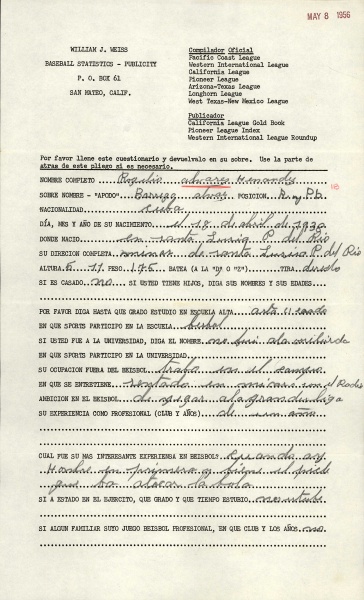 MAY 8 1956
WILLIAM J. WEISS
BASEBALL STATISTICS - PUBLICITY
P. O. BOX 61
SAN MATEO, CALIF.
Compilador Oficial
Pacific Coast League
Western International League
California League
Pioneer League
Arizona-Texas League
Longhorn League
West Texas-New Mexico League
Publicador
California League Gold Book
Pioneer League Index
Western International League Roundup
Por favor llene este cuestionario y devuelvalo en su sobre. Use la parte de
atras de este pliego si es necesario.
NOMBRE COMPLETO Rogelio alvares Hernandez
SOBRE NOMBRE - "APODO" POSICION
NACIONALIDAD cuba
DÍA, MES Y AÑO DE SU NACIMIENTO el 18 de abril de
DONDE NACIO en santa Lucia P. del Rio
SU DIRECION COMPLETA minas de santa Lucia P. del Rio
ALTURA 5-11 PESO 195 BATEA (A LA "D" O "Z") TIRA derecho
SI ES CASADO no SI USTED TIENE HIJOS, DIGA SUS NOMBRES Y SUS EDADES
POR FAVOR DIGA HASTA QUE GRADO ESTUDIO EN ESCUELA ALTA
EN QUE SPORTS PARTICIPO EN LA ESCUELA
SI USTED FUE A LA UNIVERSIDAD, DIGA EL NOMBRE no fui a la
EN QUE SPORTS PARTICIPO EN LA UNIVERSIDAD
SU OCUPACION FUERA DEL BEISBOL en el campo
EN QUE SE ENTRETIENE el Radio
AMBICION EN EL BEISBOL de jugar a la grande liga
SU EXPERIENCIA COMO PROFESIONAL (CLUB Y AÑOS) de un año
CUAL FUE SU MAS INTERESANTE EXPERIENSA EN BEISBOL? Cuando ay
Hombre en primera y
la bola
SI A ESTADO EN EL EJERCITO, QUE GRADO Y QUE TIEMPO ESTUBIO no estube
SI ALGUN FAMILIAR SUYO JUEGO BEISBOL PROFESIONAL, EN QUE CLUB Y LOS AÑOS no